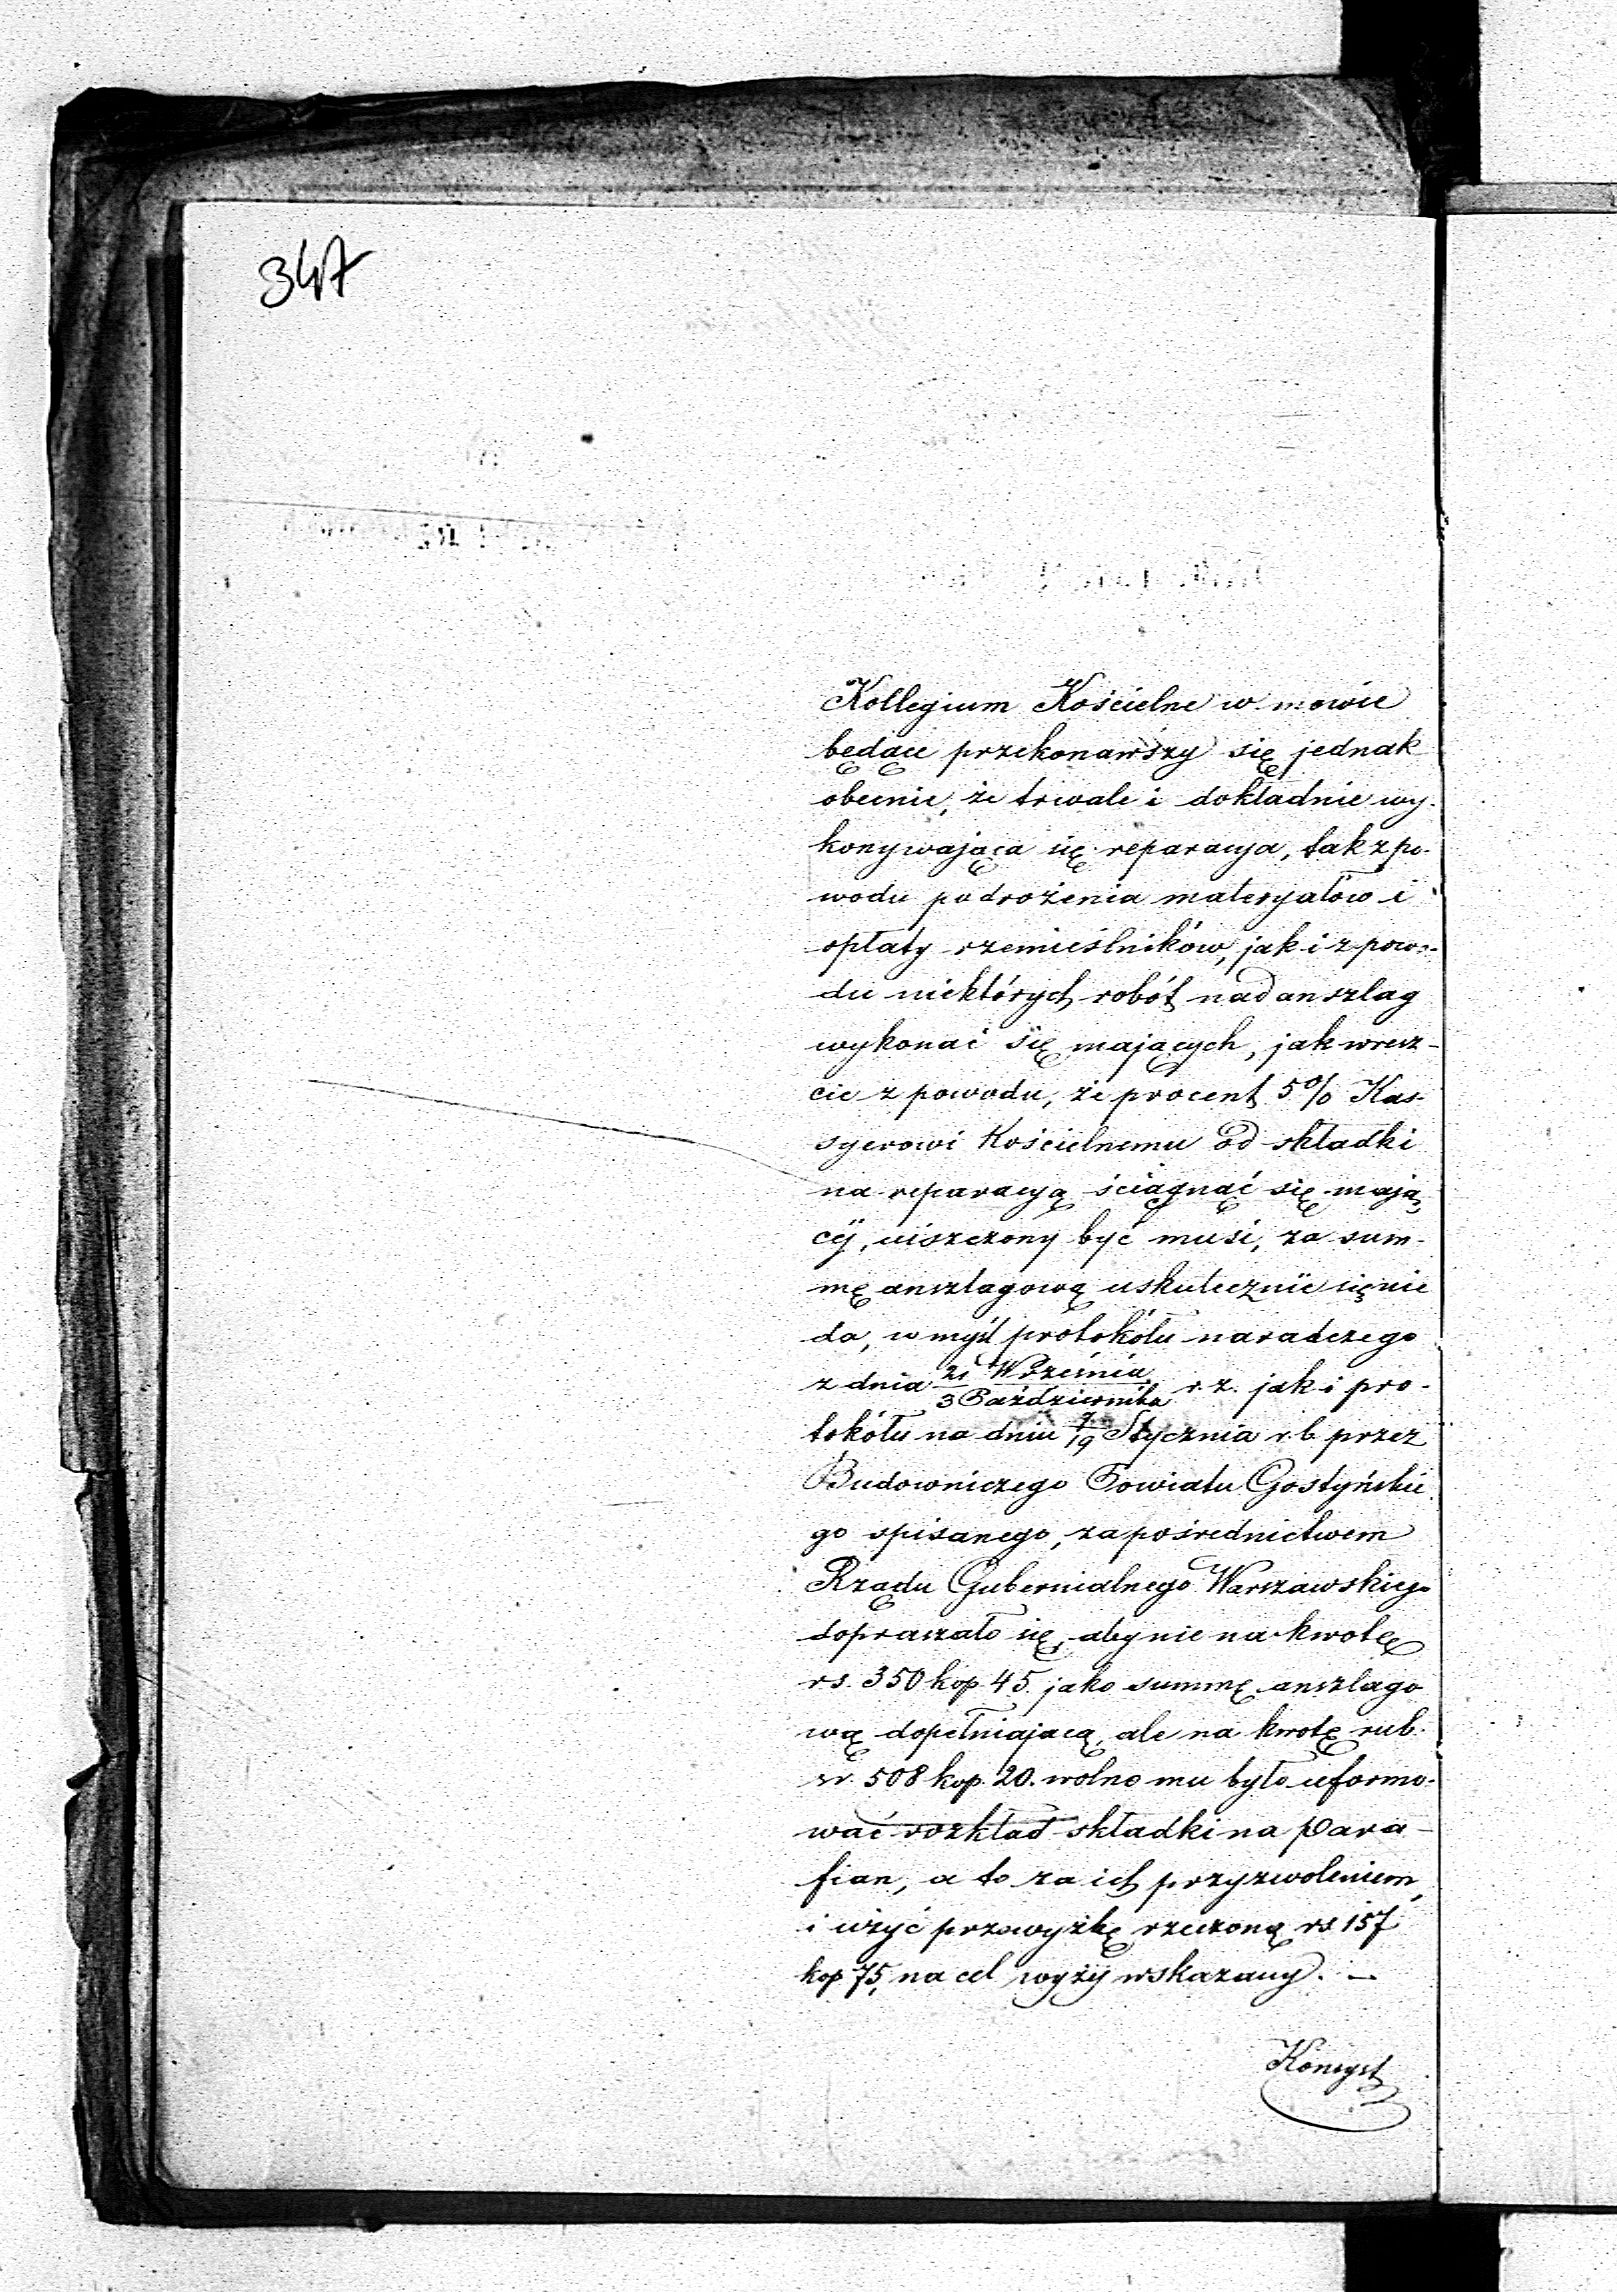 347
Kollegium Kościelne w mowie
będące przekonawszy się jednak
obecnie, że trwale i dokładnie wy-
konywająca się reparacya, tak z po-
wodu podrożenia materyałów i
opłaty rzemieślników, jak i z powo-
du niektórych robót nad anszlag
wykonać się mających, jak wresz-
cie z powodu, że procent 5% Kas-
syerowi Kościelnemu od składki
na reparacyą ściągnąć się mają
céj, uiszczony być musi, za sum-
mę anszlagową uskutecznić się nie
da, w myśl protokółu naradczego
z dnia 21 Września / 3 Października r. z. jak i pro-
tokółu na dniu 7/19 Stycznia r. b. przez
Budowniczego Powiatu Gostyńskie
go spisanego, za pośrednictwem
Rządu Gubernialnego Warszawskiego
dopraszało się, aby nie na kwotę
rs. 350 kop. 45. jako summę anszlago
wą dopełniającą, ale na kwotę rub.
sr. 508 kop. 20. wolno mu było uformo-
wać rozkład składki na Para-
fian, a to za ich przyzwoleniem,
i użyć przewyżkę rzeczoną rs. 157
kop 75, na cel wyżéj wskazany. —